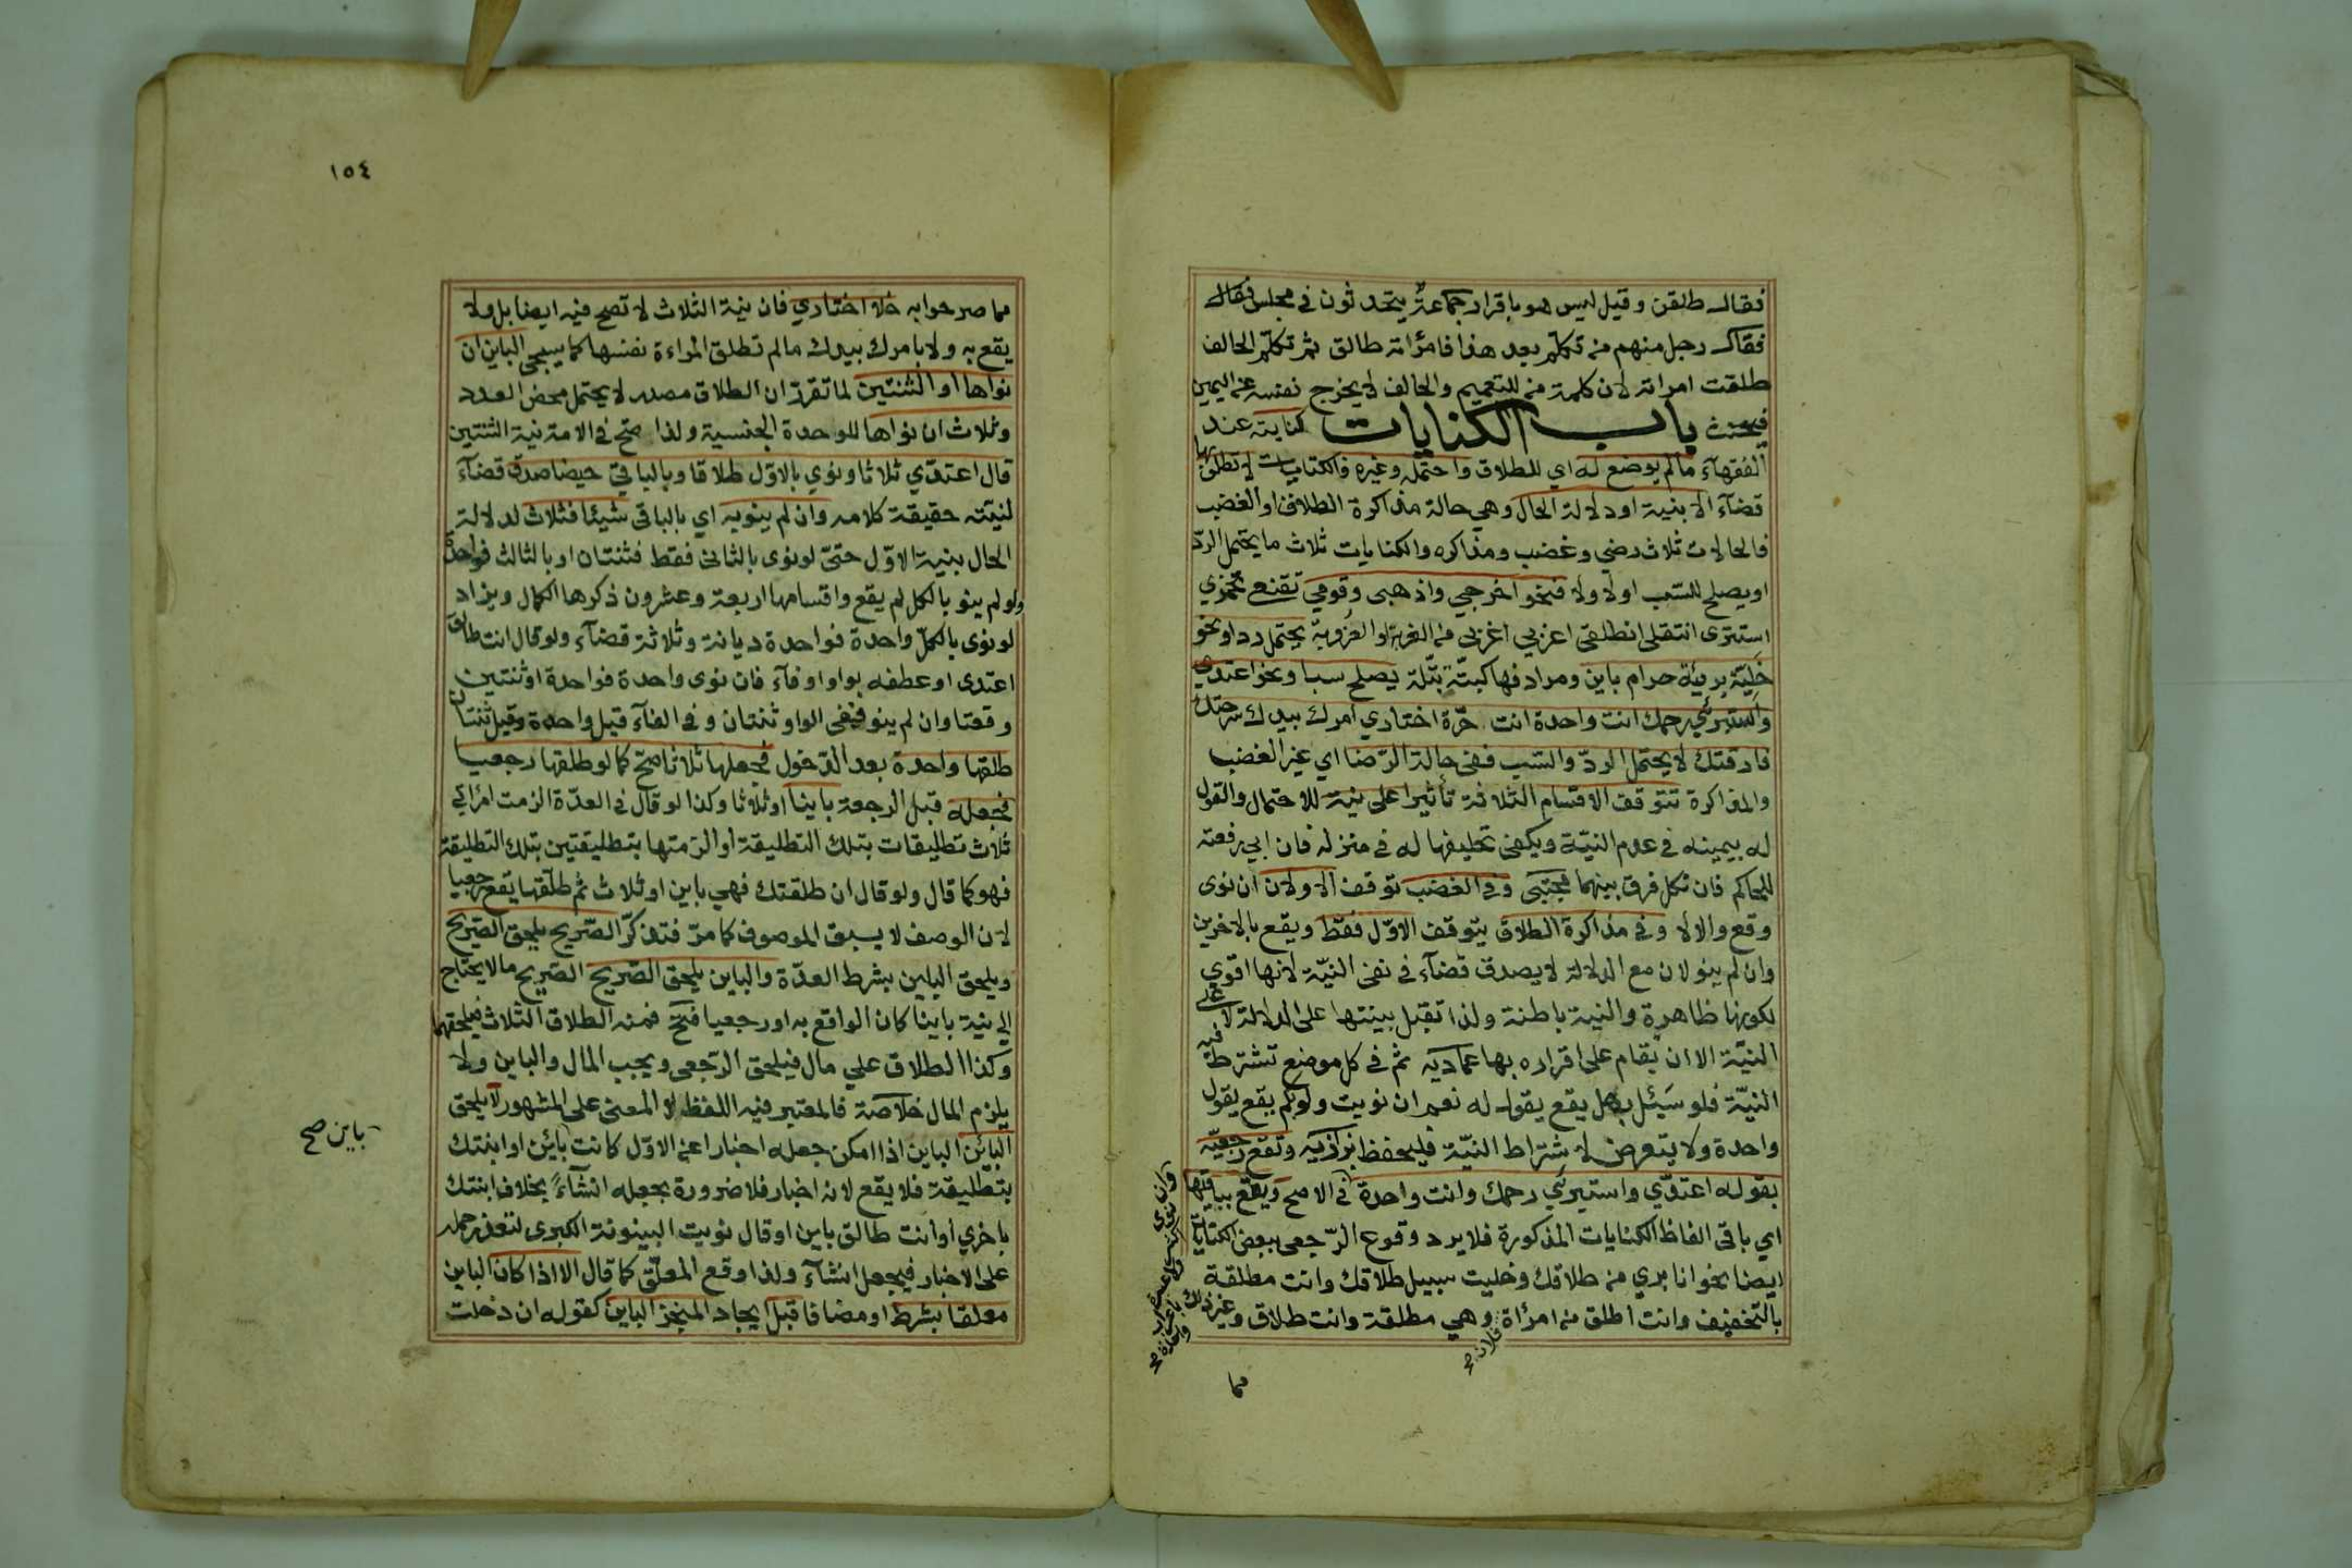 فقال طلقن وقيل ليس هو باقرار جماعة يتحدثون في مجلس فقال
فقال رجل منهم من تكلم بعد هذا فامرأته طالق ثم تكلم الحالف
طلقت امراته لان كلمة من للتعميم والحالف لا يخرج نفسه عن اليمين
فيحنث باب الكنايات كنايته عند
الفقهآء مالم يوضع له اي للطلاق واحتمله وغيره فالكنايات لا تطلق بها
قضآء الا بنية او دلالة الحال وهي حالة مذاكرة الطلاق او الغضب
فالحالات ثلاث رضي وغضب ومذاكره والكنايات ثلاث ما يحتمل الردّ
او يصلح للسّب او لا ولا فنحو اخرجي واذهبى وقومي تقنعي تخمري
استترى انتقلى انطلقى اغربي اعزبى من الغربة او العزوبة يحتمل ردا ونحو
خليّة بريّة حرام باين ومرادفها كبتّة بتّلة يصلح سبا ونحو اعتدي
واستبرئي رحمك انت واحدة انت حرّة اختاري امرك بيدك سرحتك
فارقتك لا يحتمل الردّ والسّب ففى حالة الرّضا اي غير الغضب
والمذاكرة تتوقف الاقسام الثلاثة تأثيرا على نية للاحتمال والقول
له بيمينه في عدم النيّة ويكفى تحليفها له في منزله فان ابى رفعته
للحاكم فان نكل فرق بينهما مجتبى وفي الغضب توقف الاولان ان نوى
وقع والا لا وفي مذاكرة الطلاق يتوقف الاوّل فقط ويقع بالاخرين
وان لم ينو لان مع الدلالة لا يصدق قضآء في نفى النيّة لانها اقوي
لكونها ظاهرة والنية باطنة ولذا تقبل بينتها على الدلالة لا على
النيّة الا ان يقام على اقراره بها عماديه ثم في كل موضع تشترط فيه
النيّة فلو سئل بهل يقع يقول له نعم ان نويت ولو بكم يقع يقول
واحدة ولا يتعرض لاشتراط النيّة فليحفظ بزازيه وتقع رجعيّه
بقوله اعتدّي واستبرئي رحمك وانت واحدة في الاصح ويقع بباقيها
اي باقى الفاظ الكنايات المذكورة فلا يرد وقوع الرّجعى ببعض الكنايات
ايضا نحو انا بري من طلاقك وخليت سبيل طلاقك وانت مطلقة
بالتخفيف وانت اطلق من امرأة وهي مطلقة وانت طلاق وغير ذلك
فلان صح
مما
١٥٤
مما صرحوا به خلا اختاري فان نية الثلاث لا تصح فيه ايضا بل ولا
يقع به ولا بامرك بيدك مالم تطلق المراءة نفسها كما سيجى الباين ان
نواها او الثنتين لما تقرر ان الطلاق مصدر لا يحتمل محض العدد
وثلاث ان نواها للوحدة الجنسية ولذا صح في الامة نية الثنتين
قال اعتدّي ثلاثا ونوي بالاوّل طلاقا وبالباقي حيضا صدق قضآء
لنيّته حقيقة كلامه وان لم ينو به اي بالباقى شيئا فثلاث لدلالة
الحال بنية الاوّل حتىّ لو نوى بالثانى فقط فثنتان او بالثالث فواحدة
ولو لم ينو بالكل لم يقع واقسامها اربعة وعشرون ذكرها الكمال ويزاد
لو نوى بالكلّ واحدة فواحدة ديانة وثلاثة قضآء ولو قال انت طالق
اعتدى او عطفه بواو او فآء فان نوى واحدة فواحدة او ثنتين
وقعتا وان لم ينو ففى الواو ثنتان وفي الفآء قيل واحدة وقيل ثنتان
طلقها واحدة بعد الدّخول فجعلها ثلاثا صح كما لو طلقها رجعيا
فجعله قبل الرجعة باينا او ثلاثا وكذا لو قال في العدّة الزمت امرأتي
ثلاث تطليقات بتلك التطليقة او الزمتها بتطليقتين بتلك التطليقة
فهو كما قال ولو قال ان طلقتك فهي باين او ثلاث ثم طلّقها يقع رجعيا
لان الوصف لا يسبق الموصوف كما مرّ فتذكرّ الصّريح يلحق الصّريح
ويلحق الباين بشرط العدّة والباين يلحق الصّريح الصّريح مالا يحتاج
الى نية باينا كان الواقع به او رجعيا فتح فمنه الطلاق الثلاث فيلحقهما
وكذا الطلاق علي مال فيلحق الرّجعى ويجب المال والباين ولا
يلزم المال خلاصة فالمعتبر فيه اللفظ لا المعنى على المشهور لا يلحق
البائن الباين اذا امكن جعله اخبارا عن الاوّل كانت بائن او ابنتك
بتطليقة فلا يقع لانه اخبار فلا ضرورة بجعله انشآءً بخلاف ابنتك
باخري او انت طالق باين او قال نويت البينونة الكبرى لتعذر حمله
على الاخبار فيجعل انشآء ولذا وقع المعلّق كما قال الا اذا كان الباين
معلقا بشرط او مضافا قبل ايجاد المنجز الباين كقوله ان دخلت
باين صح